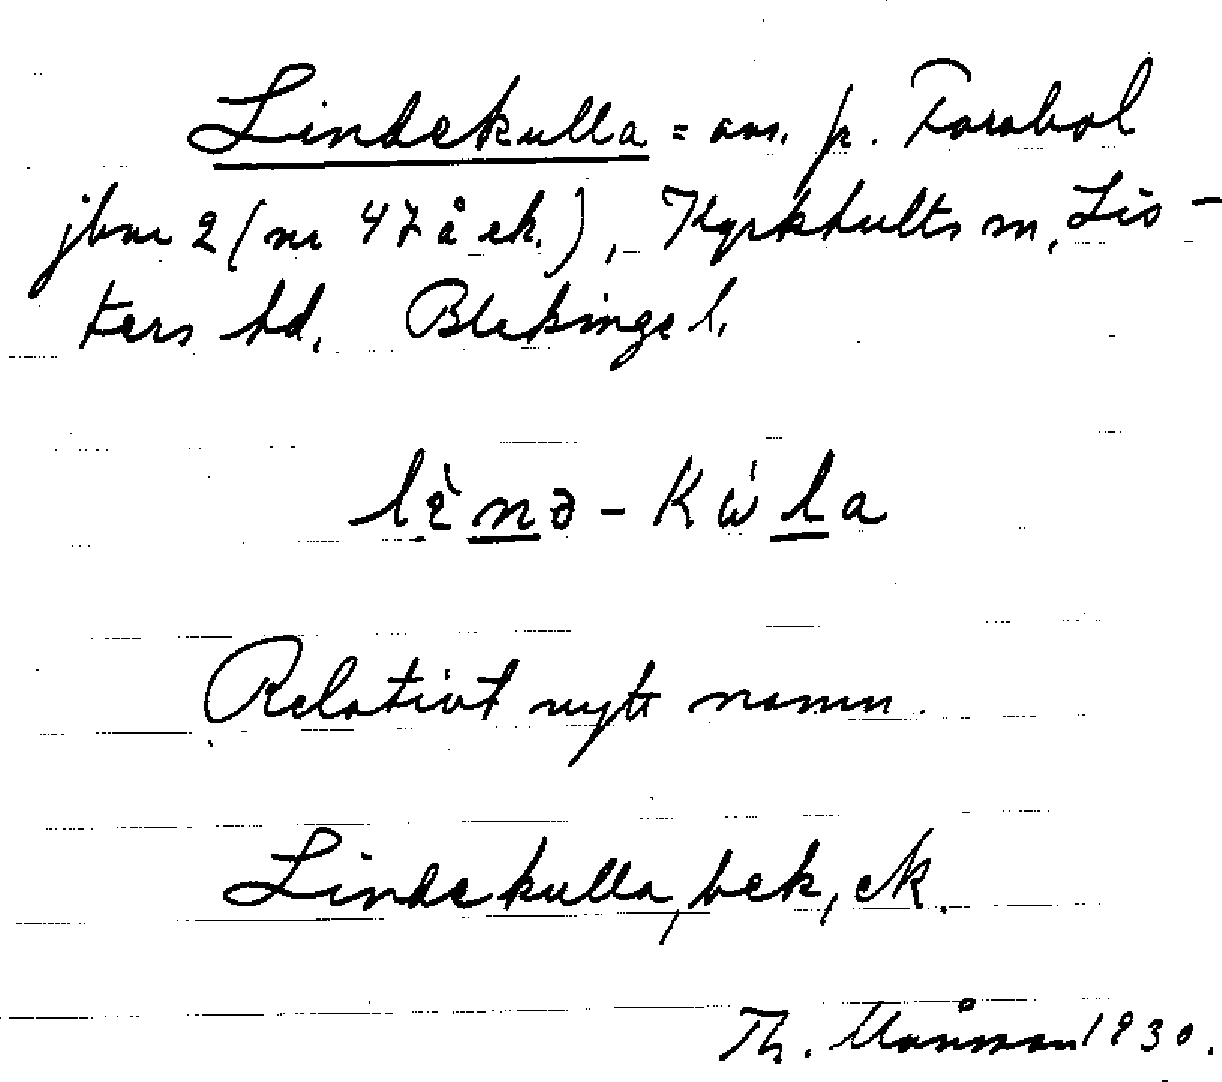 Lindekulla = avs. fr. Farabol
jbnr 2 (nr 47 å ek.), Kyrkhults sn, Lis-
ters hd. Blekinge l.
Relativt nytt namn.
Lindekulla, bek, ek.
Th. Månsson 1930.